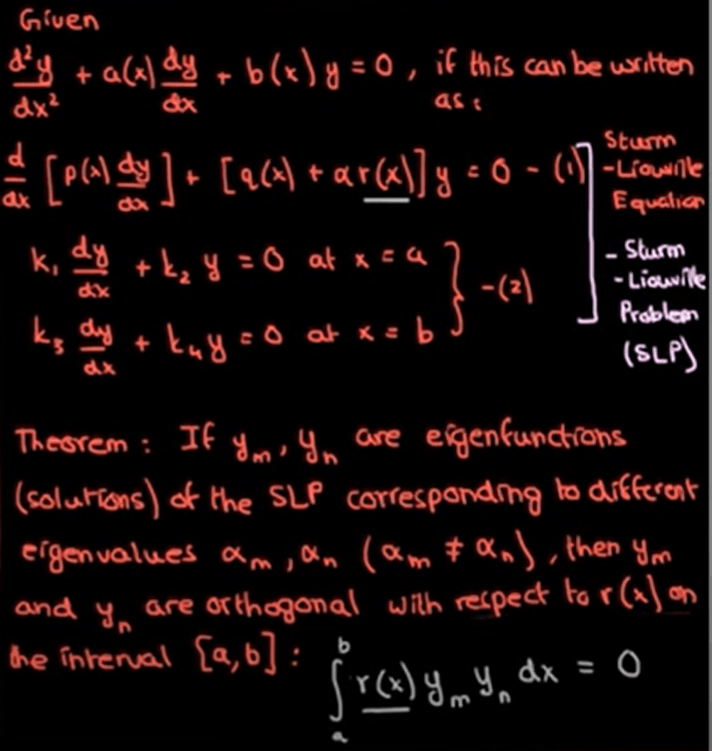 Given
d²y/dx² + a(x) dy/dx + b(x) y = 0 , if this can be written
as :
d/dx [p(x) dy/dx] + [q(x) + α r(x)] y = 0 - (1)
Sturm
-Liouville
Equation
k₁ dy/dx + k₂ y = 0 at x = a
k₃ dy/dx + k₄ y = 0 at x = b
} -(2)
- Sturm
- Liouville
Problem
(SLP)
Theorem : If yₘ , yₙ are eigenfunctions
(solutions) of the SLP corresponding to different
eigenvalues αₘ , αₙ (αₘ ≠ αₙ) , then yₘ
and yₙ are orthogonal with respect to r(x) on
the interval [a,b] :
∫ₐᵇ r(x) yₘ yₙ dx = 0